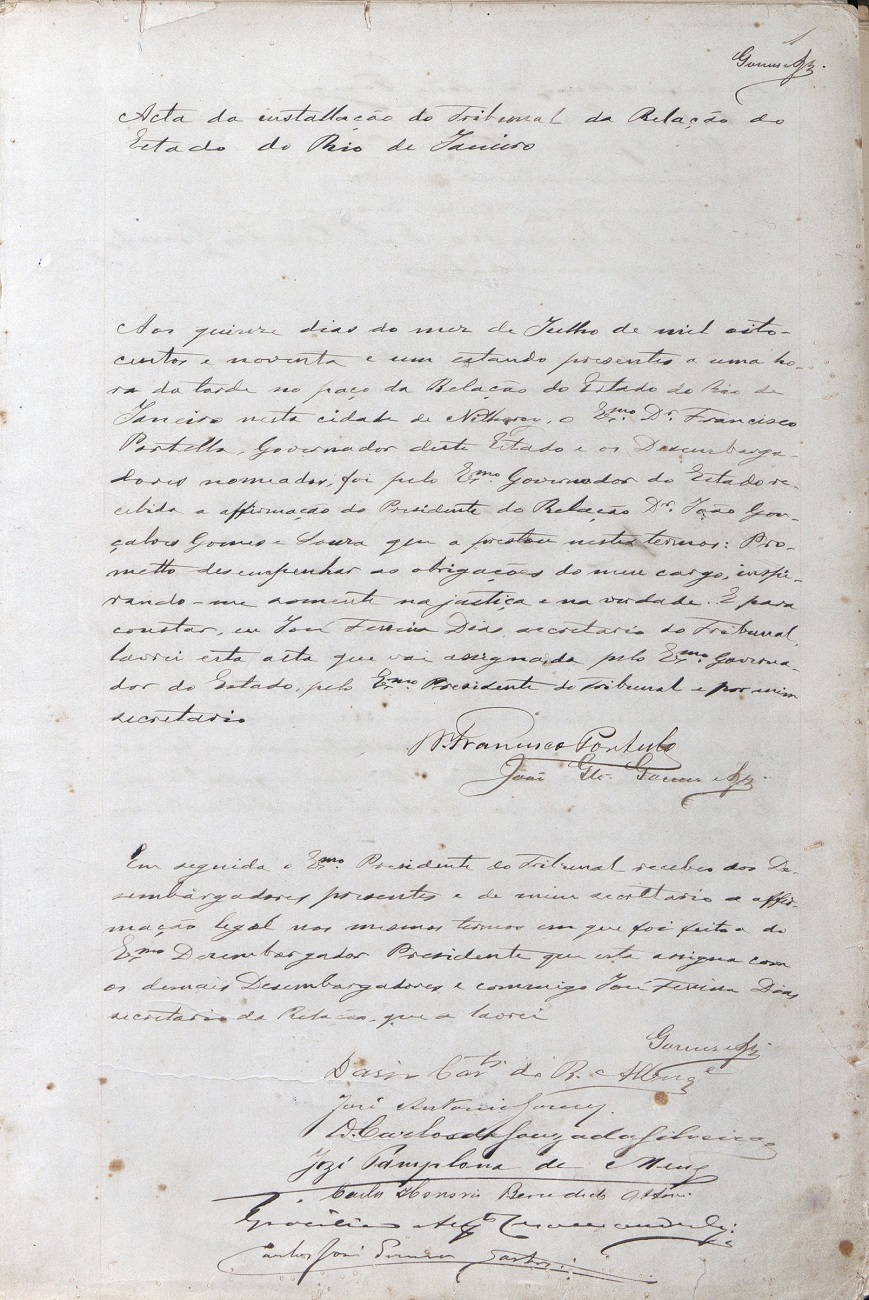 1
Acta da installação do Tribunal da Relação do
Estado do Rio de Janeiro
Aos quinze dias do mez de Julho de mil oito-
centos e noventa e um estando presentes a uma ho-
ra da tarde no paço da Relação do Estado do Rio de
Janeiro nesta cidade de Nitheroy, o Exmo. Dr. Francisco
Portella, Governador deste Estado e os Desembarga-
dores nomeados, foi pelo Exmo Governador do Estado re-
cebida a affirmação do Presidente da Relação Dr. João Gon-
çalves Gomes e Souza que a prestou nestes termos: Pro-
metto desempenhar as obrigações do meu cargo, inspi-
rando-me somente na justiça e na verdade. E para
constar, eu José Ferreira Dias, secretario do Tribunal,
lavrei esta acta que vai assignada pelo Exmo. Governa-
dor do Estado, pelo Exmo. Presidente do Tribunal e por mim
secretario
Dr. Francisco Portella
João Glz. Gomes e
Em seguida o Exmo. Presidente do Tribunal recebeo dos De-
sembargadores presentes e de mim secretario a affir-
mação legal nos mesmos termos em que foi feita a do
Exmo Desembargador Presidente que esta assigna com
os demais Desembargadores e commigo José Ferreira Dias,
secretario da Relação, que a lavrei
Gomes e
José Antonio Gomes
D. Carlos de Souza da Silveira
José Pamplona de Menezes
Carlos Honorio Benedicto Ottoni
Carlos José Pereira Bastos